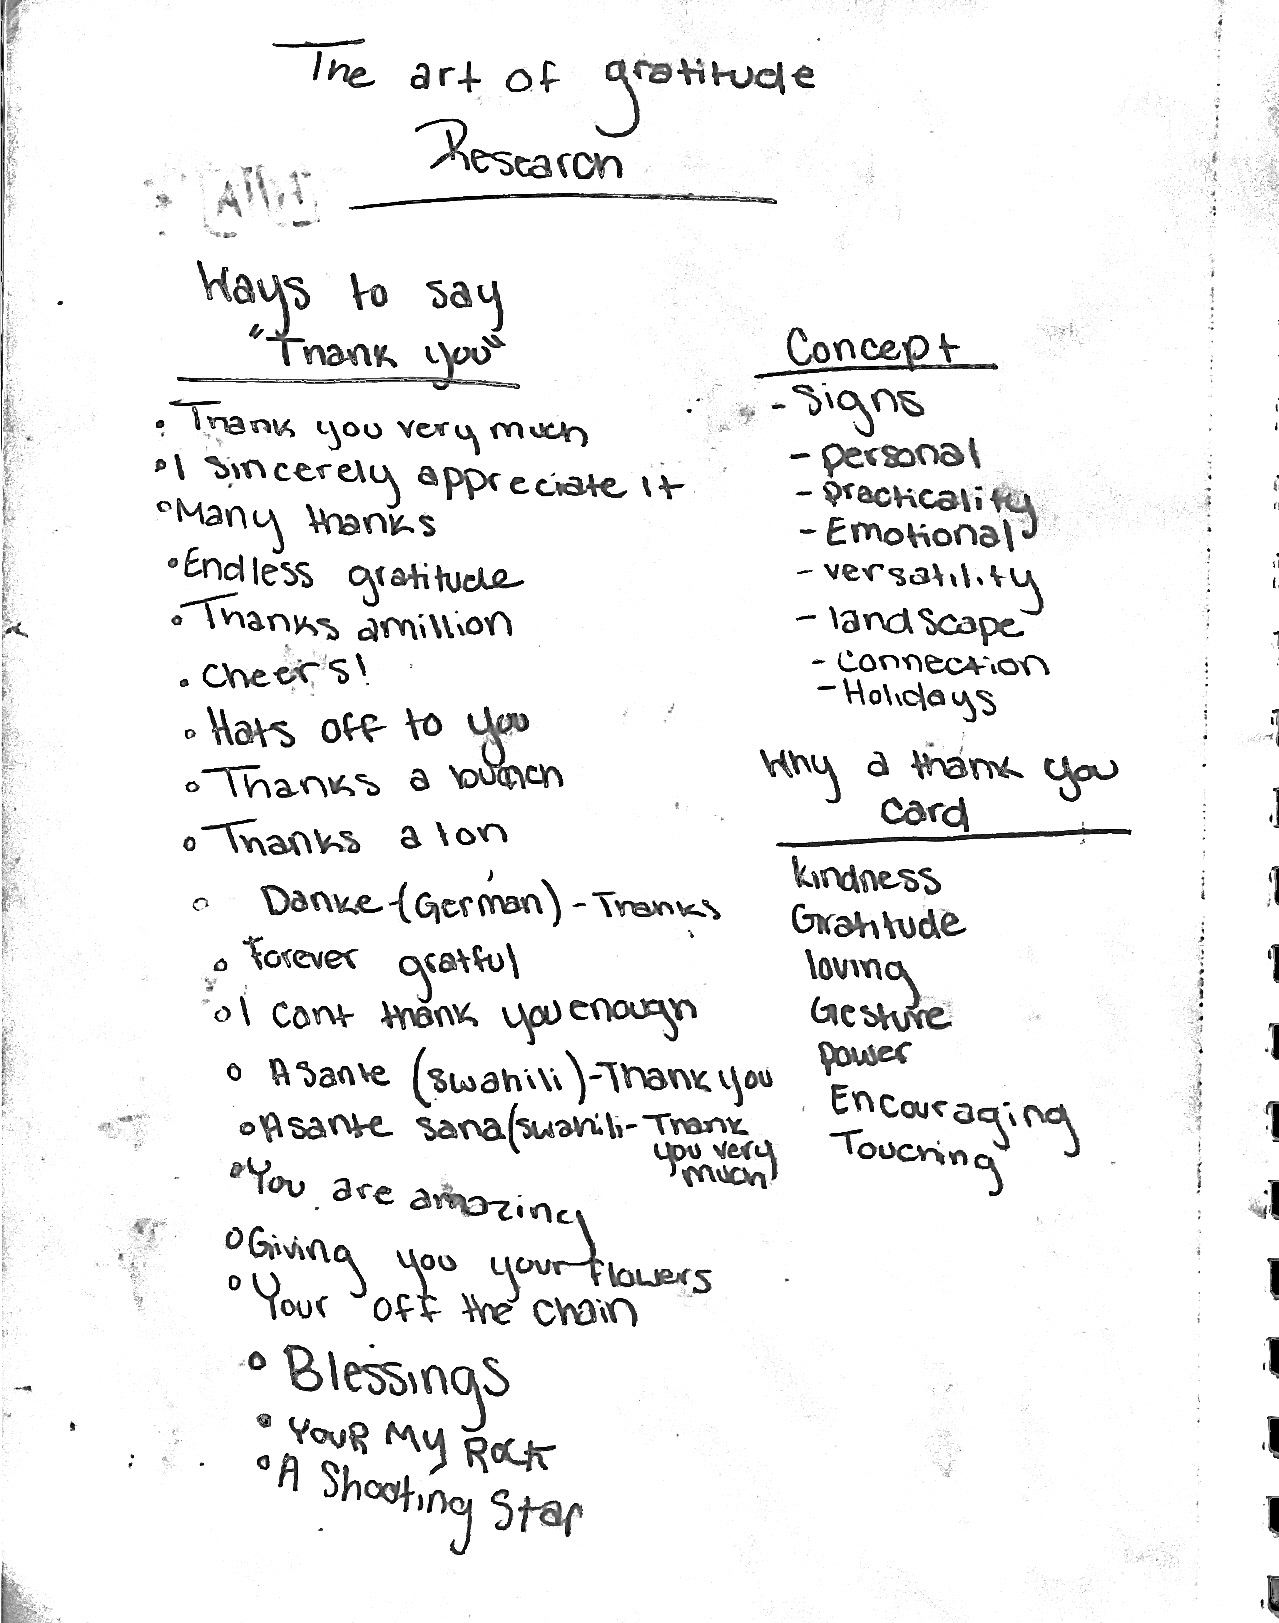 The art of gratitude
Research
Ways to say
"Thank you"
• Thank you very much
• I sincerely appreciate it
• Many thanks
• Endless gratitude
• Thanks amillion
• Cheers!
• Hats off to you
• Thanks a bunch
• Thanks a ton
• Danke-(German)-Thanks
• Forever gratful
• I cant thank you enough
• Asante (swahili)-Thank you
• Asante sana(swahili-Thank
you very
much
• You are amazing
• Giving you your flowers
• Your off the chain
• Blessings
• Your My Rock
• A Shooting Star
Concept
- Signs
- personal
- practicality
- Emotional
- versatility
- landscape
- connection
- Holidays
Why a thank you
card
kindness
Gratitude
loving
Gesture
power
Encouraging
Touching